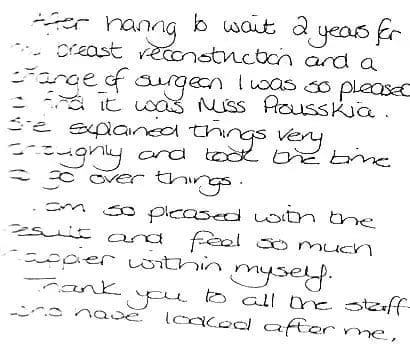 After having to wait 2 years for
breast reconstruction and a
change of surgeon I was so pleased
to find it was Miss Prousskia.
She explained things very
throughly and took the time
to go over things.
I am so pleased with the
result and feel so much
happier within myself.
Thank you to all the staff
who have looked after me,